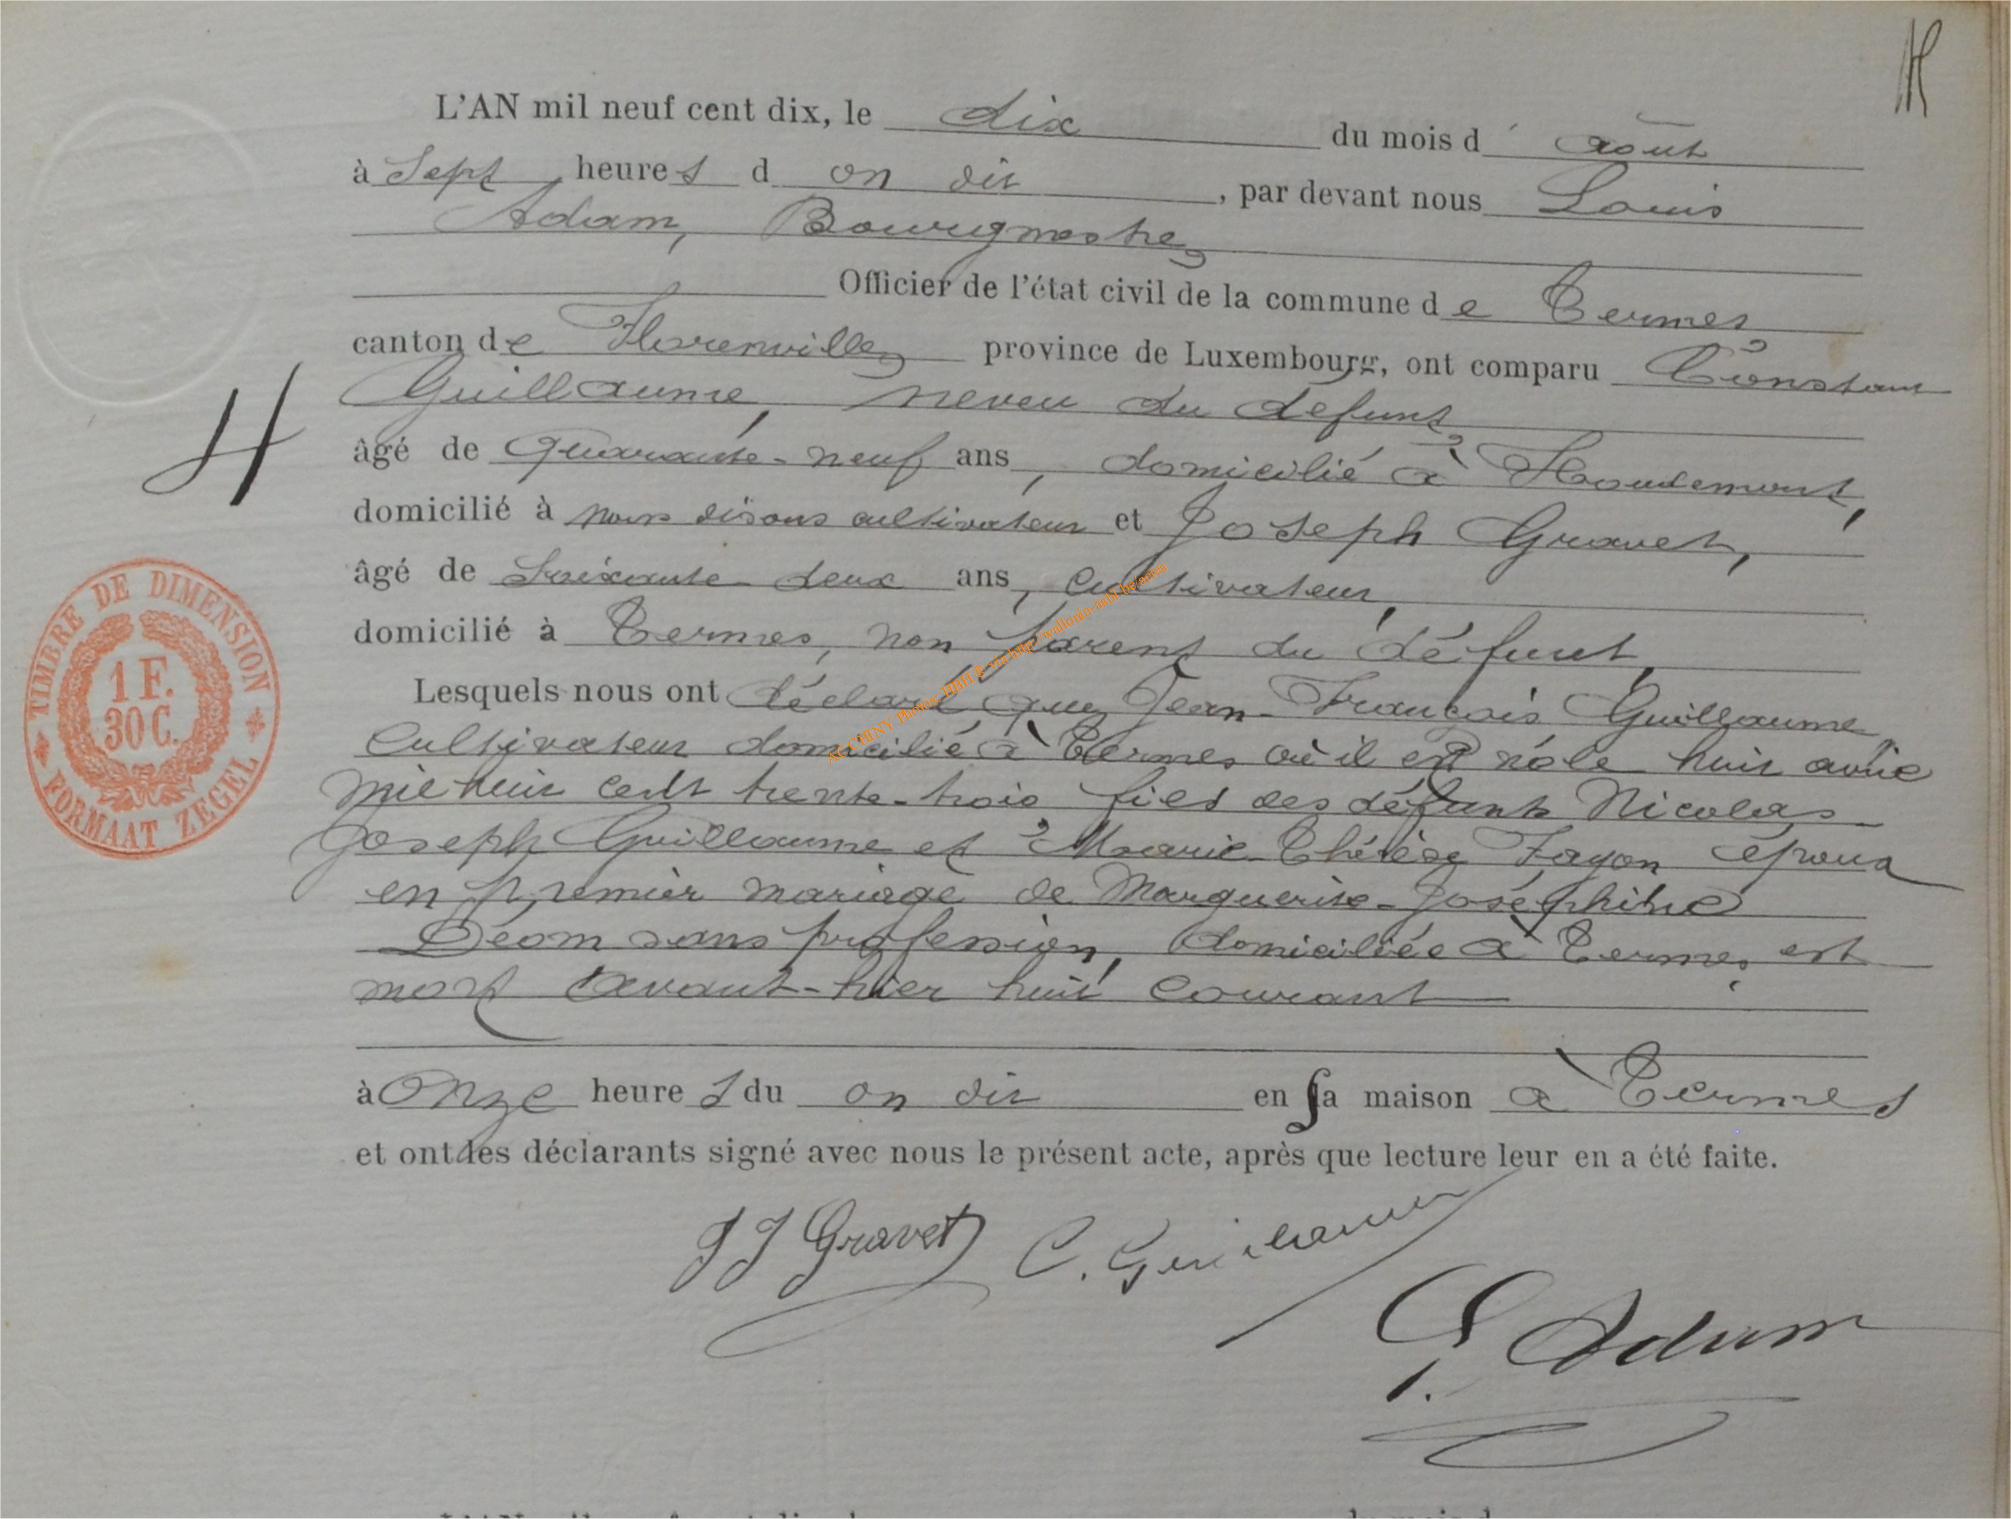 L'AN mil neuf cent dix, le dix du mois d'août
à Sept heures d on dit, par devant nous Louis
Adam, Bourgmestre
Officier de l'état civil de la commune de Termes
canton de Florenville province de Luxembourg, ont comparu Constant
Guillaume, neveu du défunt
âgé de quarante-neuf ans, domicilié à Houdemont,
domicilié à nous disons cultivateur et Joseph Gravet,
âgé de Soixante-deux ans, cultivateur,
domicilié à Termes, non parent du défunt,
Lesquels nous ont déclaré que Jean-François Guillaume
Cultivateur domicilié à Termes où il est né le huit avril
mil huit cent trente-trois fils des défunts Nicolas-
Joseph Guillaume et Marie-Thérèse Fayon époux
en premier mariage de Marguerite-Joséphine
Déom sans profession, domiciliée à Termes, est
mort avant-hier huit courant
à Onze heures du on dit en sa maison à Termes
et ont les déclarants signé avec nous le présent acte, après que lecture leur en a été faite.
JJ Gravet C. Guillaume
L. Adam
4
TIMBRE DE DIMENSION
1 F.
30 C.
FORMAAT ZEGEL